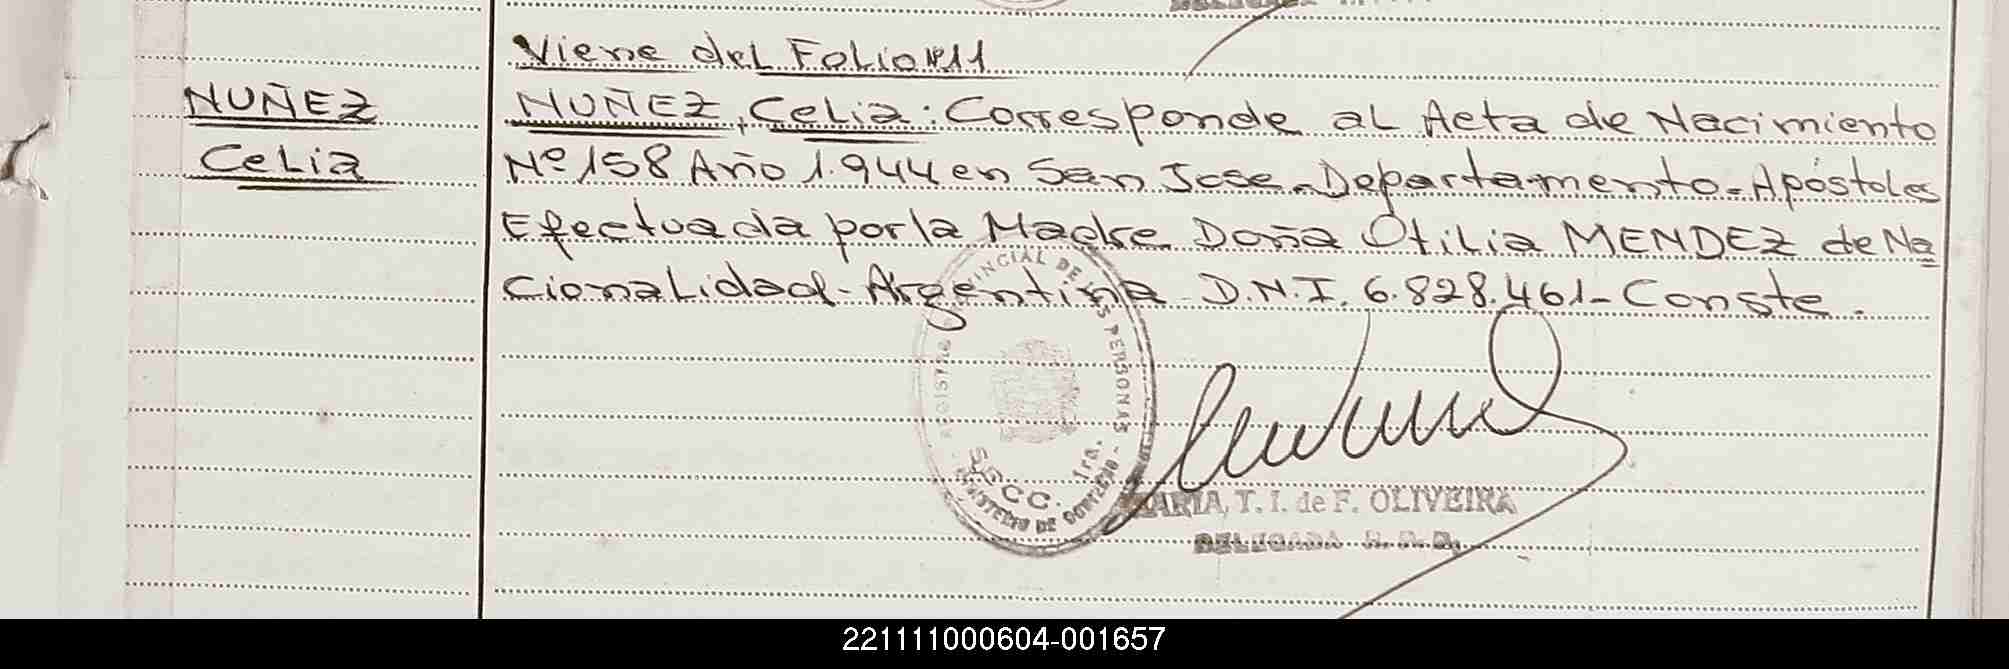 Viene del Folio Nº 11
NUÑEZ
Celia
NUÑEZ, Celia: Corresponde al Acta de Nacimiento
Nº 158 Año 1.944 en San Jose. Departamento. Apóstoles
Efectuada por la Madre Doña Otilia MENDEZ de Na
cionalidad- Argentina D.N.I. 6.828.461- Conste.
PROVINCIAL DE LAS PERSONAS
REGISTRO
1ra.
MARIA, T. I. de F. OLIVEIRA
DELEGADA R.P.P.
221111000604-001657